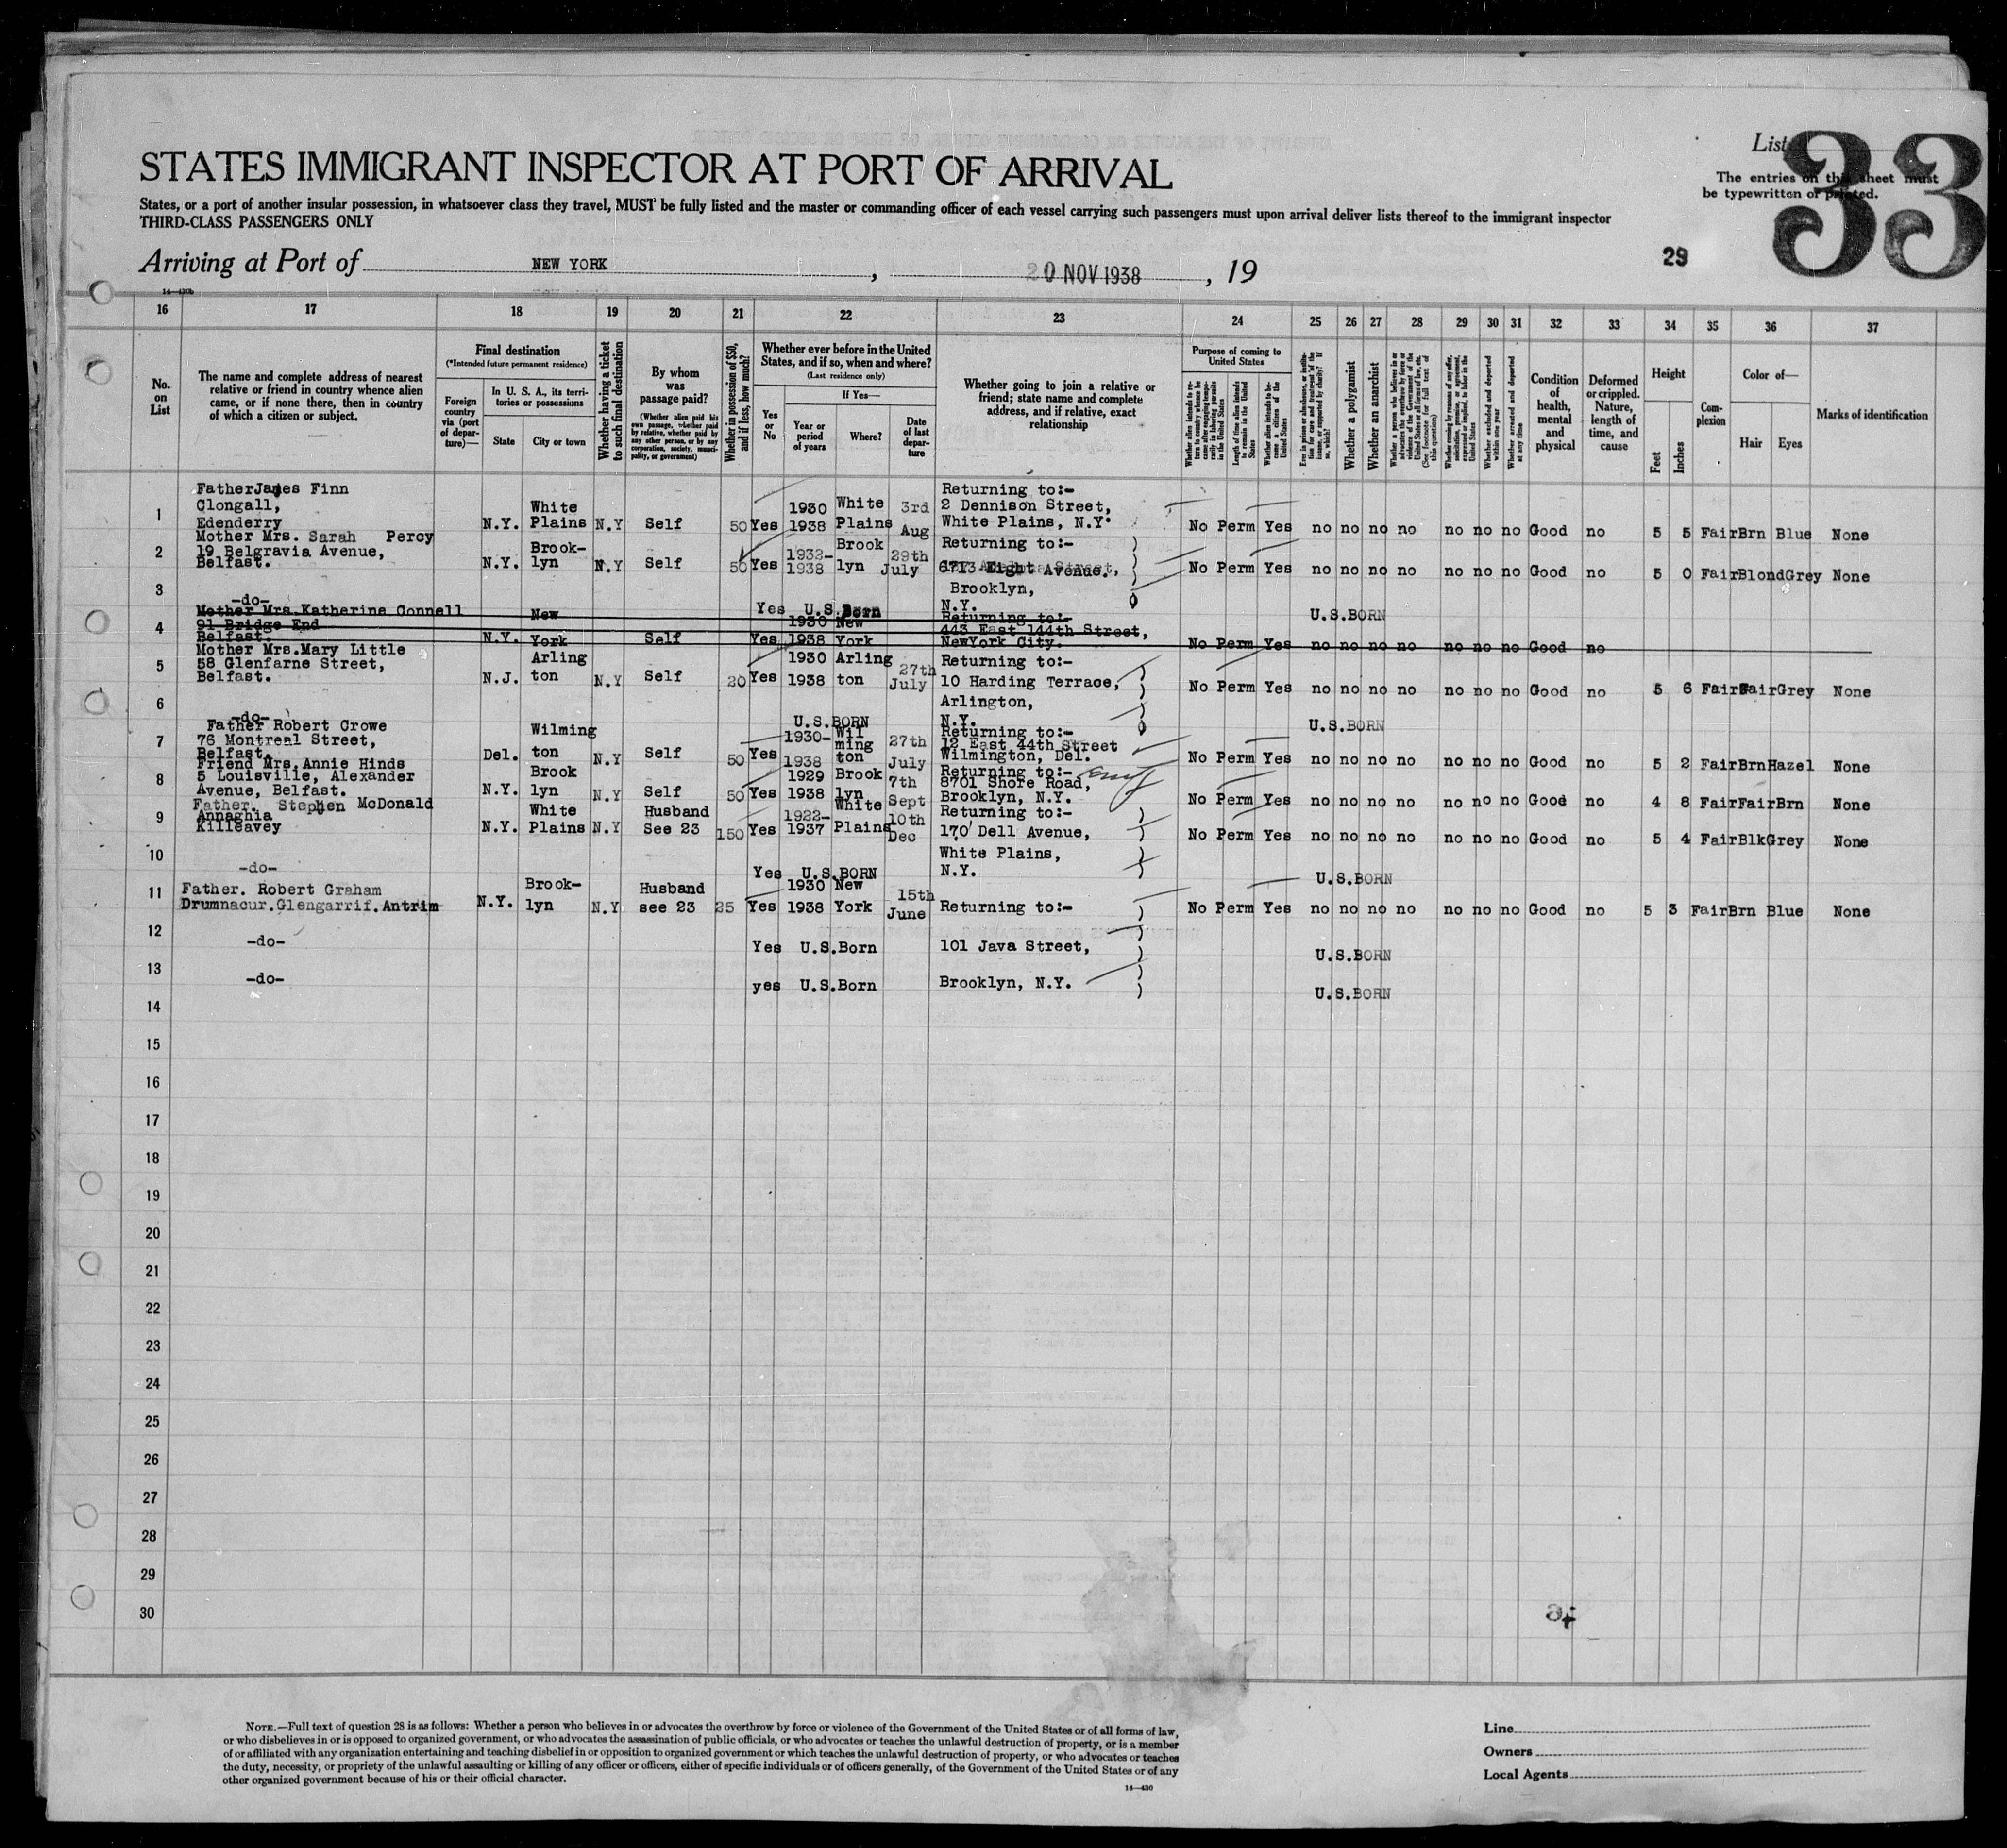 List
33
The entries on this sheet must
be typewritten or printed.
STATES IMMIGRANT INSPECTOR AT PORT OF ARRIVAL
States, or a port of another insular possession, in whatsoever class they travel, MUST be fully listed and the master or commanding officer of each vessel carrying such passengers must upon arrival deliver lists thereof to the immigrant inspector
THIRD-CLASS PASSENGERS ONLY
29
Arriving at Port of NEW YORK , 20 NOV 1938 , 19
14—430b
16 17 18 19 20 21 22 23 24 25 26 27 28 29 30 31 32 33 34 35 36 37
No. on List
The name and complete address of nearest relative or friend in country whence alien came, or if none there, then in country of which a citizen or subject.
Final destination
(*Intended future permanent residence)
Foreign country via (port of departure)—
In U. S. A., its territories or possessions
State
City or town
Whether having a ticket to such final destination
By whom was passage paid?
(Whether alien paid his own passage, whether paid by relative, whether paid by any other person, or by any corporation, society, municipality, or government)
Whether in possession of $50, and if less, how much?
Whether ever before in the United States, and if so, when and where?
(Last residence only)
Yes or No
If Yes—
Year or period of years
Where?
Date of last departure
Whether going to join a relative or friend; state name and complete address, and if relative, exact relationship
Purpose of coming to United States
Length of time alien intends to remain in the United States
Whether alien intends to become a citizen of the United States
Whether a polygamist
Whether an anarchist
Whether excluded and deported within one year
Whether arrested and deported at any time
Condition of health, mental and physical
Deformed or crippled. Nature, length of time, and cause
Height
Feet
Inches
Complexion
Color of—
Hair
Eyes
Marks of identification
1 Father James Finn Clongall, Edenderry N.Y. White Plains N.Y Self 50 Yes 1930 1938 White Plains 3rd Aug Returning to:- 2 Dennison Street, White Plains, N.Y. No Perm Yes no no no no no no no Good no 5 5 Fair Brn Blue None
2 Mother Mrs. Sarah Percy 19 Belgravia Avenue, Belfast. N.Y. Brook-lyn N.Y Self 50 Yes 1932-1938 Brook lyn 29th July Returning to:- Eight Avenue. No Perm Yes no no no no no no no Good no 5 0 Fair Blond Grey None
3 -do- Yes U.S.Born Brooklyn, N.Y. U.S.BORN
4 Mother Mrs.Katherine Connell 91 Bridge End Belfast. N.Y. New York Self Yes 1930 1938 New York Returning to:- 443 East 144th Street, NewYork City. No Perm Yes no no no no no no no Good no
5 Mother Mrs.Mary Little 58 Glenfarne Street, Belfast. N.J. Arling ton N.Y Self 20 Yes 1930 1938 Arling ton 27th July Returning to:- 10 Harding Terrace, No Perm Yes no no no no no no no Good no 5 6 Fair Fair Grey None
6 -do- U.S.BORN Arlington, N.Y. U.S.BORN
7 Father Robert Crowe 76 Montreal Street, Belfast. Del. Wilming ton N.Y Self 50 Yes 1930-1938 Wil ming ton 27th July Returning to:- 12 East 44th Street Wilmington, Del. No Perm Yes no no no no no no no Good no 5 2 Fair Brn Hazel None
8 Friend Mrs.Annie Hinds 5 Louisville, Alexander Avenue, Belfast. N.Y. Brook lyn N.Y Self 50 Yes 1929 1938 Brook lyn 7th Sept Returning to:- 8701 Shore Road, Brooklyn, N.Y. No Perm Yes no no no no no no no Good no 4 8 Fair Fair Brn None
9 Father. Stephen McDonald Annaghia Killeavey N.Y. White Plains N.Y Husband See 23 150 Yes 1922-1937 White Plains 10th Dec Returning to:- 170 Dell Avenue, No Perm Yes no no no no no no no Good no 5 4 Fair Blk Grey None
10 -do- Yes U.S.BORN White Plains, N.Y. U.S.BORN
11 Father. Robert Graham Drumnacur.Glengarrif.Antrim N.Y. Brook-lyn N.Y Husband see 23 25 Yes 1930 1938 New York 15th June Returning to:- No Perm Yes no no no no no no no Good no 5 3 Fair Brn Blue None
12 -do- Yes U.S.Born 101 Java Street, U.S.BORN
13 -do- yes U.S.Born Brooklyn, N.Y. U.S.BORN
14
15
16
17
18
19
20
21
22
23
24
25
26
27
28
29
30
NOTE.—Full text of question 28 is as follows: Whether a person who believes in or advocates the overthrow by force or violence of the Government of the United States or of all forms of law,
or who disbelieves in or is opposed to organized government, or who advocates the assassination of public officials, or who advocates or teaches the unlawful destruction of property, or is a member
of or affiliated with any organization entertaining and teaching disbelief in or opposition to organized government or which teaches the unlawful destruction of property, or who advocates or teaches
the duty, necessity, or propriety of the unlawful assaulting or killing of any officer or officers, either of specific individuals or of officers generally, of the Government of the United States or of any
other organized government because of his or their official character.
14—430
Line
Owners
Local Agents